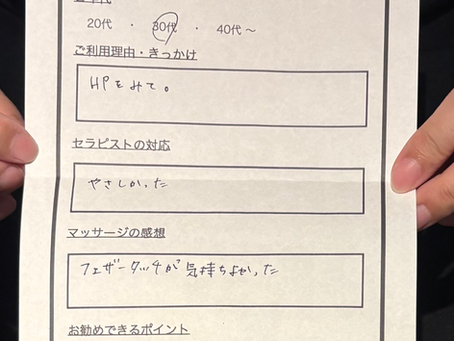 20代 ・ 30代 ・ 40代～
ご利用理由・きっかけ
HPをみて。
セラピストの対応
やさしかった
マッサージの感想
フェザータッチが気持ちよかった
お勧めできるポイント